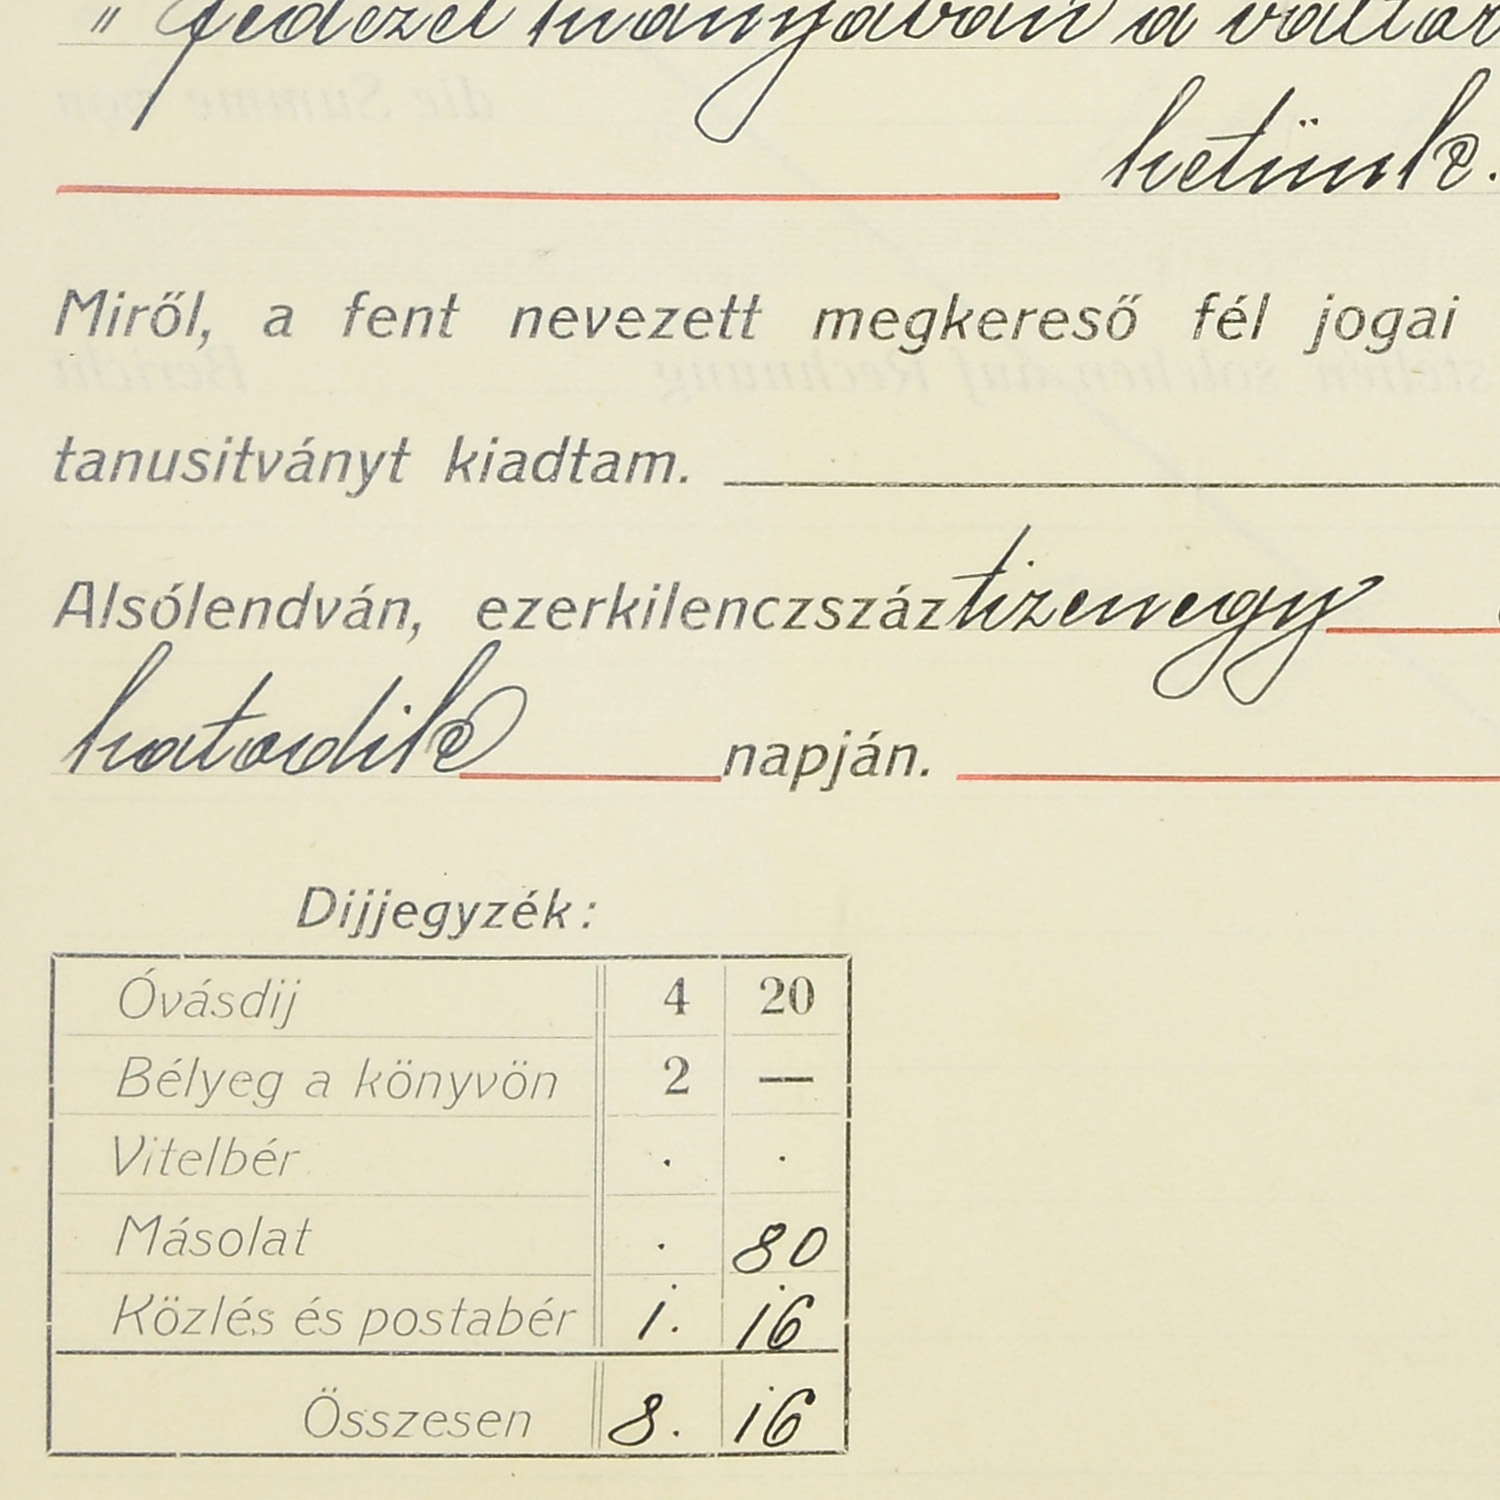 " fedezet hiányában a váltót
hetünk.
Miről, a fent nevezett megkereső fél jogai
tanusitványt kiadtam.
Alsólendván, ezerkilenczszáztizenegy
hatodik napján.
Dijjegyzék:
Óvásdij 4 20
Bélyeg a könyvön 2 —
Vitelbér . .
Másolat . 80
Közlés és postabér 1. 16
Összesen 8. 16